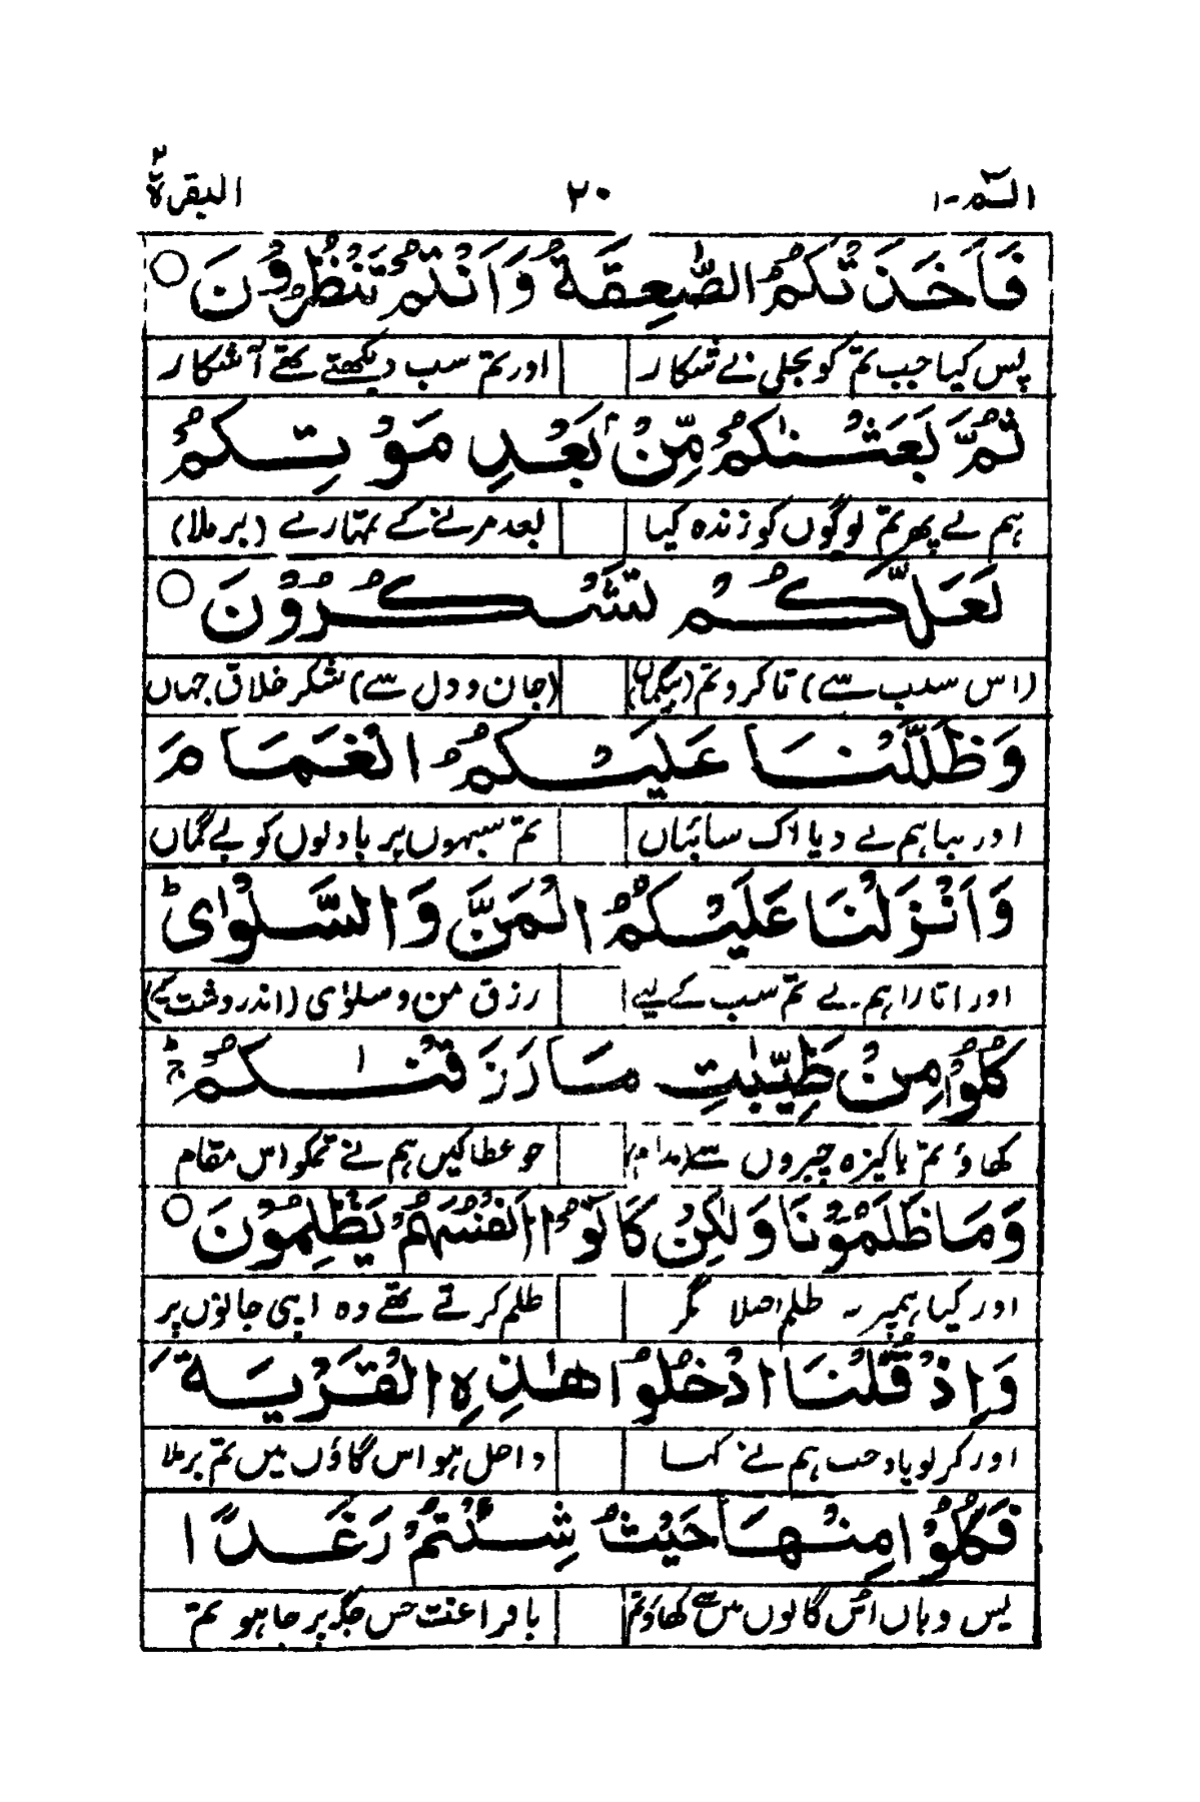 الٓمّٓ-۱ ۲۰ البقرة ۲
فَاَخَذَتْكُمُ الصّٰعِقَةُ وَاَنْتُمْ تَنْظُرُوْنَ ○
پس کیا جب تم کو بجلی نے شکار اور تم سب دیکھتے تھے آشکار
ثُمَّ بَعَثْنٰكُمْ مِّنْۢ بَعْدِ مَوْتِكُمْ
ہم نے پھر تم لوگوں کو زندہ کیا بعد مرنے کے تمہارے (برملا)
لَعَلَّكُمْ تَشْكُرُوْنَ ○
(اس سبب سے) تا کرو تم (بیگماں) (جان و دل سے) شکر خلاق جہاں
وَظَلَّلْنَا عَلَيْكُمُ الْغَمَامَ
اور بنا ہم نے دیا اک سائباں تم سبھوں پر بادلوں کو بے گماں
وَاَنْزَلْنَا عَلَيْكُمُ الْمَنَّ وَالسَّلْوٰى ؕ
اور اتارا ہم نے تم سب کے لیے رزق من و سلوٰی (اندر دشت کے)
كُلُوْا مِنْ طَيِّبٰتِ مَا رَزَقْنٰكُمْ ؕ
کھاؤ تم پاکیزہ چیزوں سے (مدام) جو عطا کیں ہم نے تمکو اس مقام
وَمَا ظَلَمُوْنَا وَلٰكِنْ كَانُوْۤا اَنْفُسَهُمْ يَظْلِمُوْنَ ○
اور کیا ہمپر نہ ظلم اصلا مگر ظلم کرتے تھے وہ اپنی جانوں پر
وَاِذْ قُلْنَا ادْخُلُوْا هٰذِهِ الْقَرْيَةَ
اور کر لو یاد جب ہم نے کہا داخل ہو اس گاؤں میں تم برملا
فَكُلُوْا مِنْهَا حَيْثُ شِئْتُمْ رَغَدًا
پس وہاں اس گانوں میں سے کھاؤ تم بافراغت جس جگہ پر چاہو تم